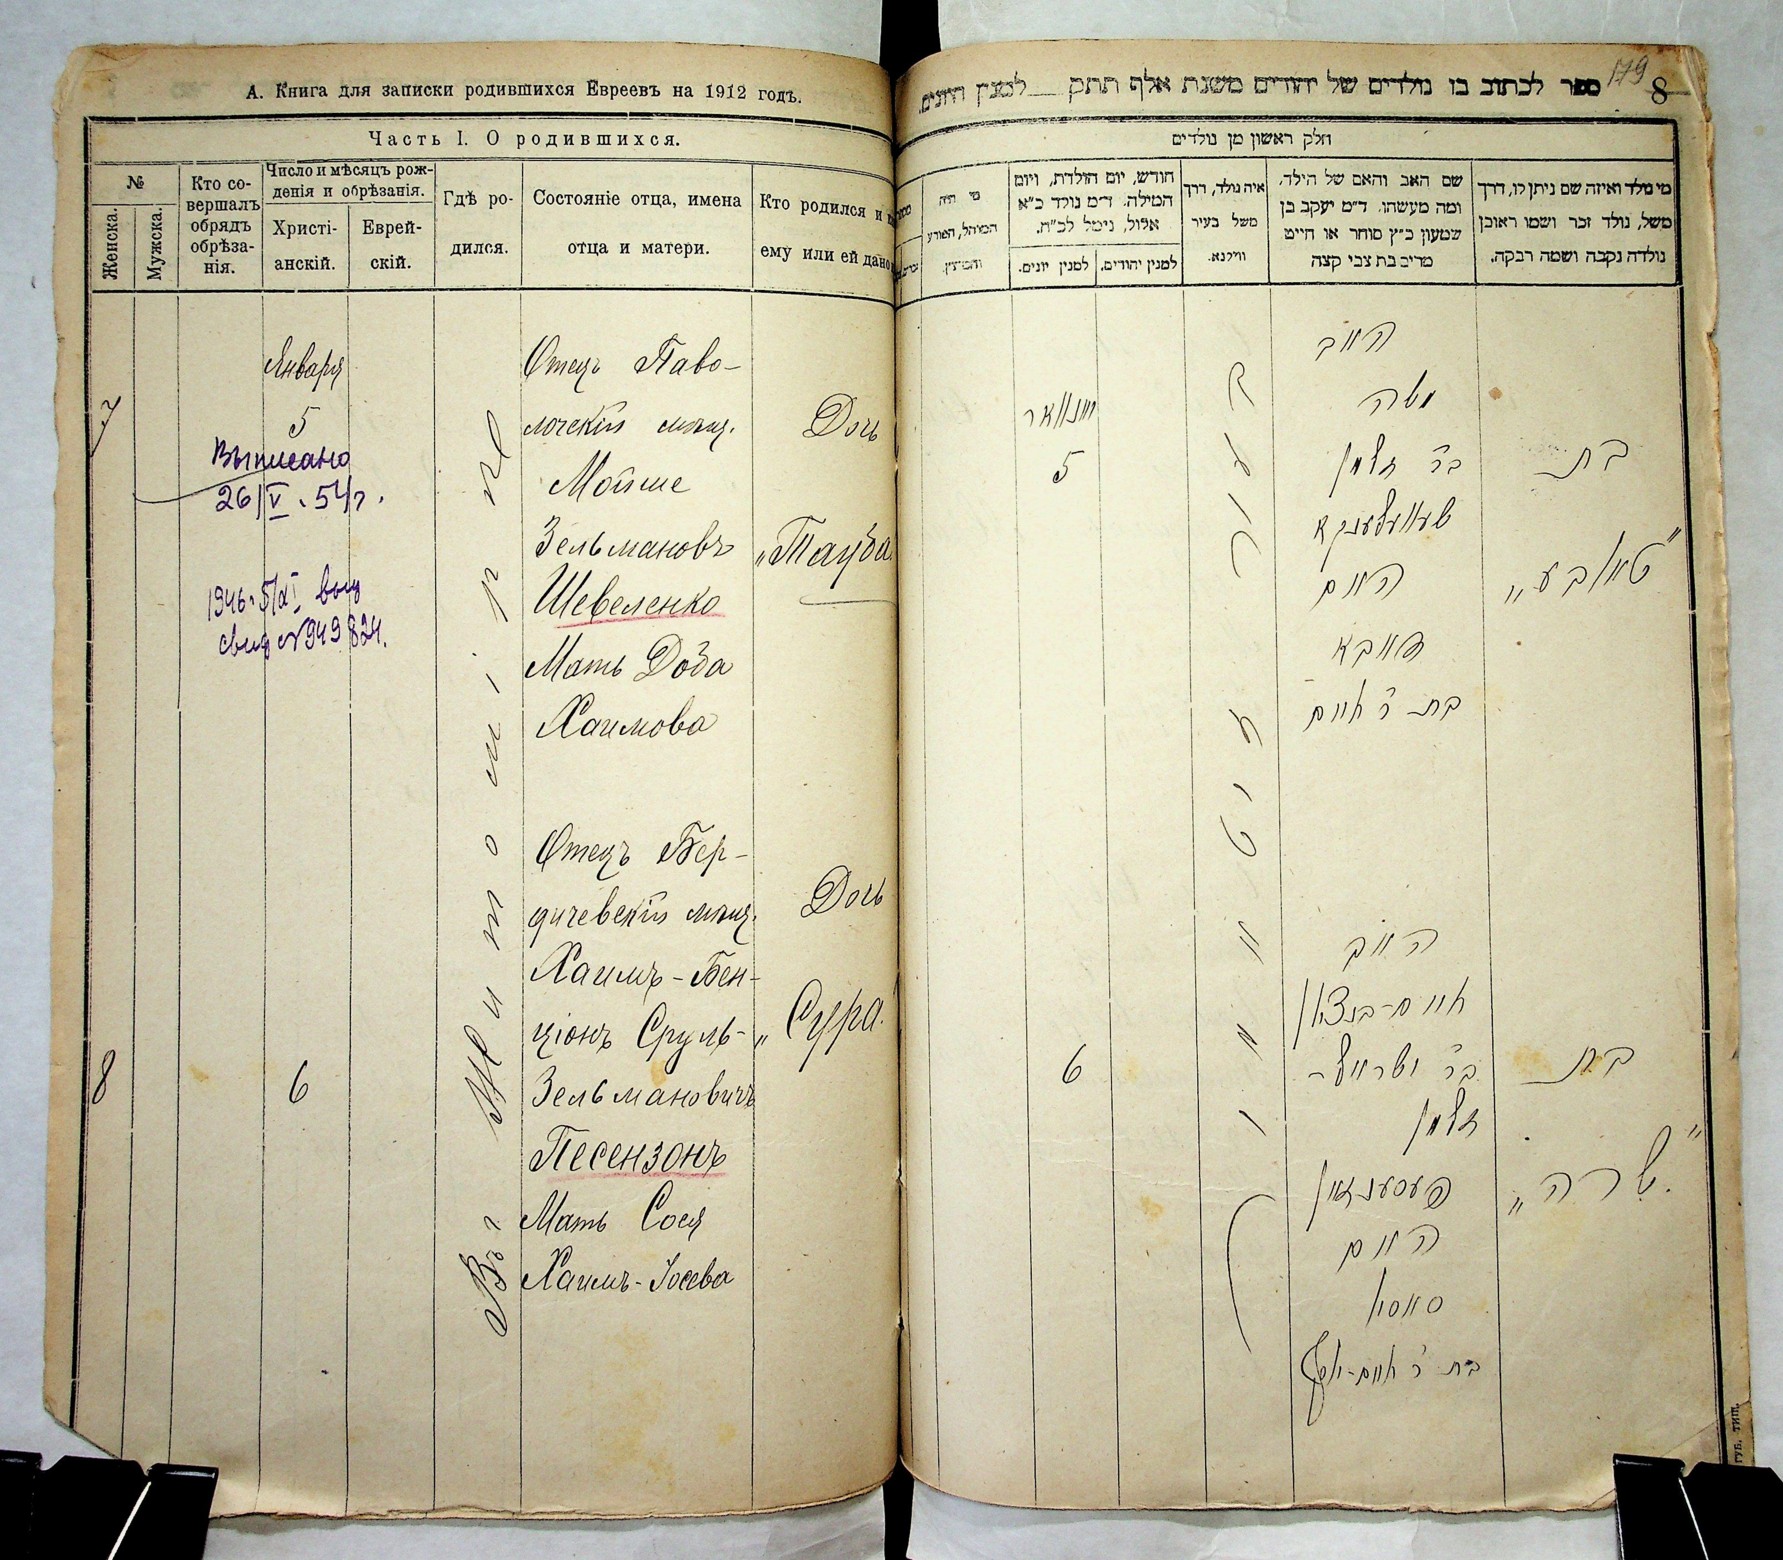 А. Книга для записки родившихся Евреевъ на 1912 годъ.
Часть I. О родившихся.
№
Женска.
Мужска.
Кто со-
вершалъ
обрядъ
обрѣза-
нія.
Число и мѣсяцъ рож-
денія и обрѣзанія.
Христі-
анскій.
Еврей-
скій.
Гдѣ ро-
дился.
Состояніе отца, имена
отца и матери.
Кто родился и
ему или ей дано
7
Января
5
Выписано
26/V. 54 г.
1946. 5/XI выд
свид N 949824.
Въ г Житомірѣ
Отецъ Паво-
лочскій мѣщ.
Мойше
Зельмановъ
Шевеленко
Мать Доба
Хаимова
Дочь
„Тауба"
8
6
Отецъ Бер-
дичевскій мѣщ.
Хаимъ-Бен-
ціонъ Сруль-
Зельмановичъ
Песензонъ
Мать Сося
Хаимъ-Іосева
Дочь
„Сура"
179
8
ספר לכתוב בו נולדים של יהודים משנת אלף תתק למנין היונים.
חלק ראשון מן נולדים
מי נולד ואיזה שם ניתן לו, דרך
משל, נולד זכר ושמו ראובן
נולדה נקבה ושמה רבקה.
שם האב והאם של הילד,
ומה מעשהו. ד״מ יעקב בן
שמעון כ״ץ סוחר או חייט
מריב בת צבי קצה
איה נולד, דרך
משל בעיר
ווילנא.
חודש, יום הולדת, ויום
המילה. ד״מ נולד כ״א
אלול, נימל לכ״ח.
למנין יהודים.
למנין יונים.
מי היה
המוהל, הפורע
והמוצץ.
בת
„טויבע"
האב
משה
בר זלמן
שעוועלענקא
האם
דאבא
בת ר חיים
יאנואר
5
בעיר זיטאמיר
בת
„שרה"
האב
חיים-בנציון
בר ישראל-
זלמן
פעסענזאן
האם
סאסי
בת ר חיים-יוסף
6
ГУБ. ТИП.